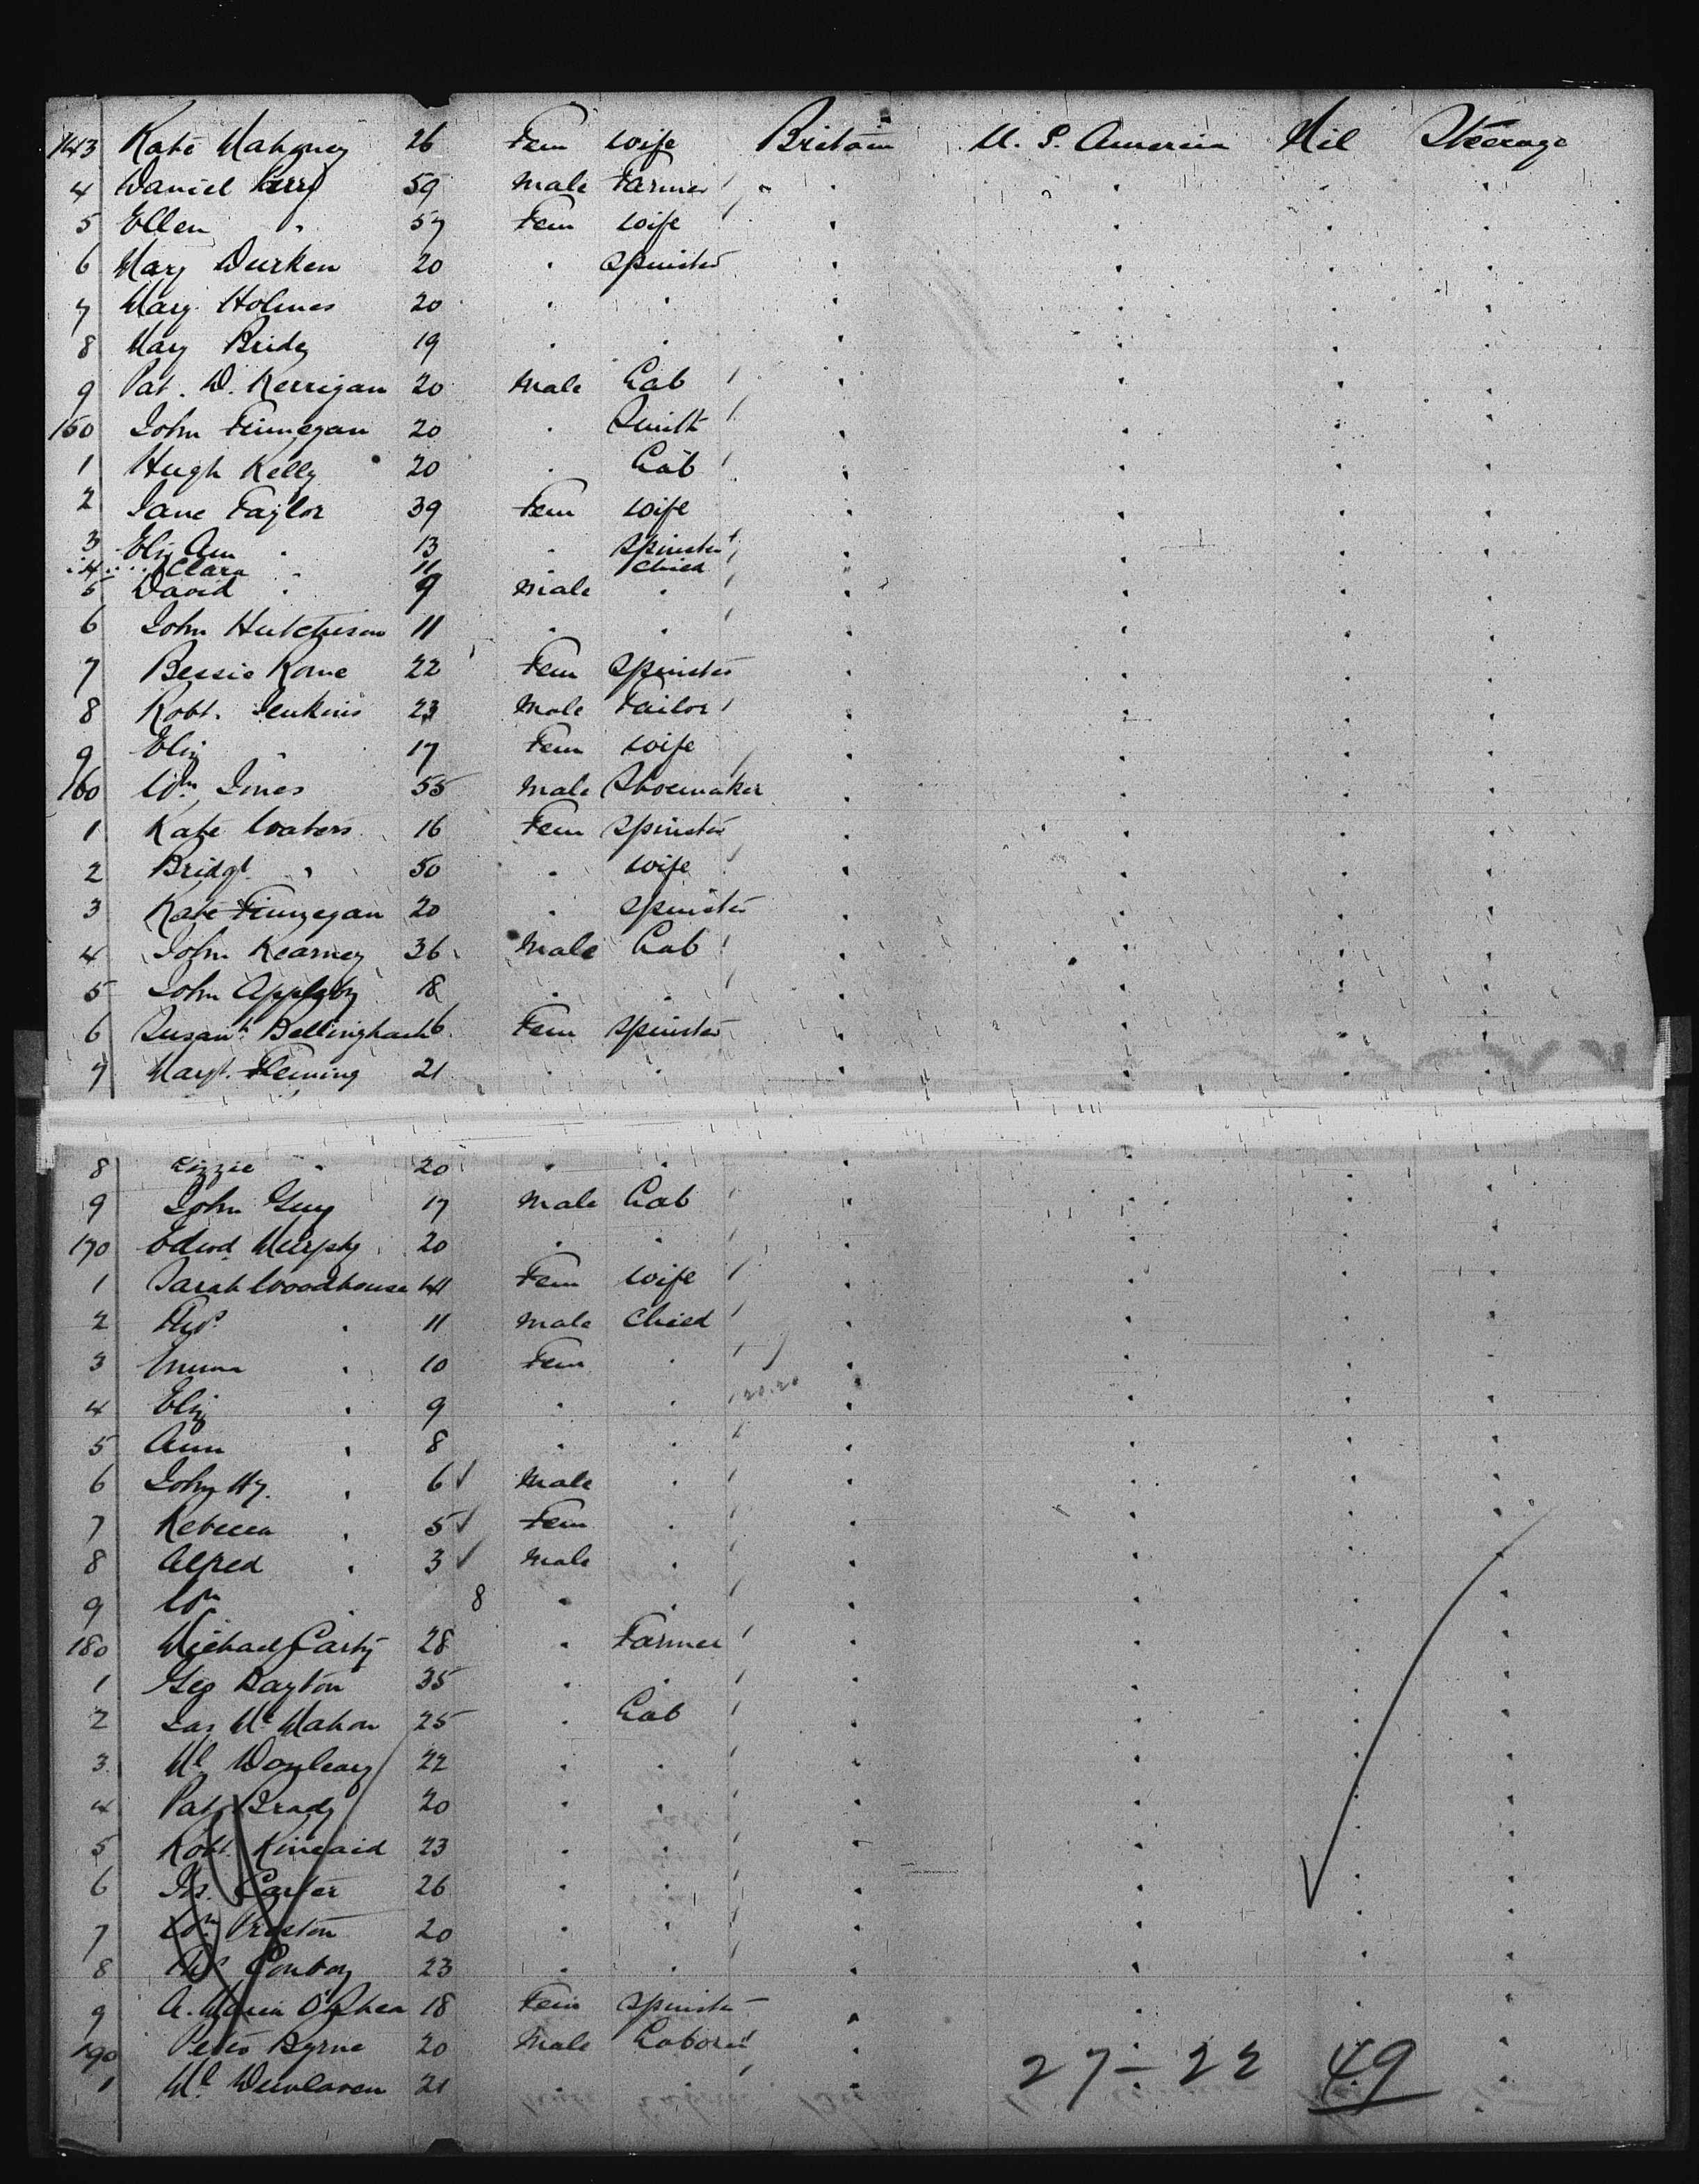 143 Kate Mahoney 26 Fem Wife Britain U. S. America Nil Steerage
4 Daniel Perry 59 Male Farmer
5 Ellen " 57 Fem Wife
6 Mary Durken 20 " Spinster
7 Mary Holmes 20 " "
8 Mary Bridy 19 " "
9 Pat. D. Kerrigan 20 Male Lab
150 John Finnegan 20 " Smith
1 Hugh Kelly 20 " Lab
2 Jane Taylor 39 Fem Wife
3 Eliz Ann " 13 " Spinster
4 Clara " 11 " Child
5 David " 9 Male "
6 John Hutchison 11 " "
7 Bessie Rowe 22 Fem Spinster
8 Robt. Jenkins 23 Male Tailor
9 Eliz " 17 Fem Wife
160 Wm Jones 55 Male Shoemaker
1 Kate Waters 16 Fem Spinster
2 Bridgt " 50 " Wife
3 Kate Finnegan 20 " Spinster
4 John Kearney 36 Male Lab
5 John Appleby 18 " "
6 Susanh Bellingham 16 Fem Spinster
7 Margt. Fleming 21 " "
8 Lizzie " 20 " "
9 John Guy 17 Male Lab
170 Edwd Murphy 20 " "
1 Sarah Woodhouse 41 Fem Wife
2 " 11 Male Child
3 Emma " 10 Fem "
4 Eliz " 9 " "
5 Ann " 8 " "
6 John Hy. " 6 Male "
7 Rebecca " 5 Fem "
8 Alfred " 3 Male "
9 Wm " 8 " "
180 Michael Carty 28 " Farmer
1 Geo Dayton 35 " "
2 Jas McMahon 25 " Lab
3 Ml 22 " "
4 Pat Brady 20 " "
5 Robt. Kincaid 23 " "
6 Carter 26 " "
7 Wm Preston 20 " "
8 Conboy 23 " "
9 A. Maria O'Shea 18 Fem Spinster
190 Peter Byrne 20 Male Laborer
1 Ml 21 " "
27 - 22 49